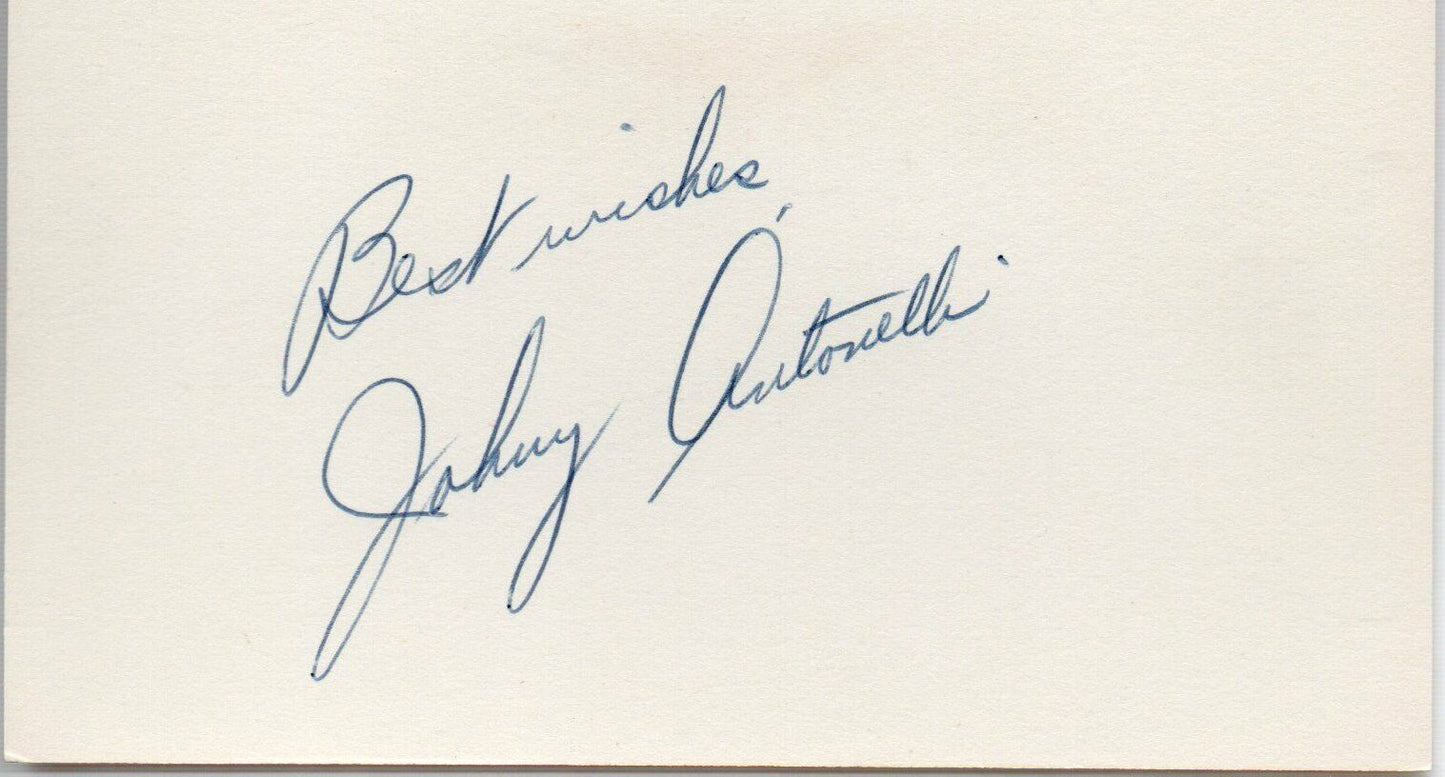 Best wishes,
Johnny Antonelli